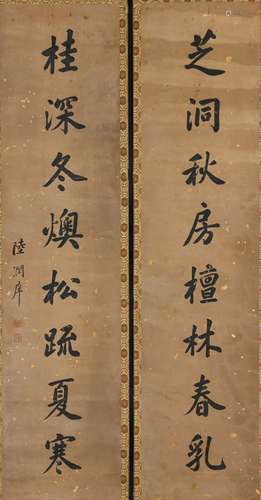 芝洞秋房檀林春乳
桂深冬燠松疏夏寒
陸潤庠